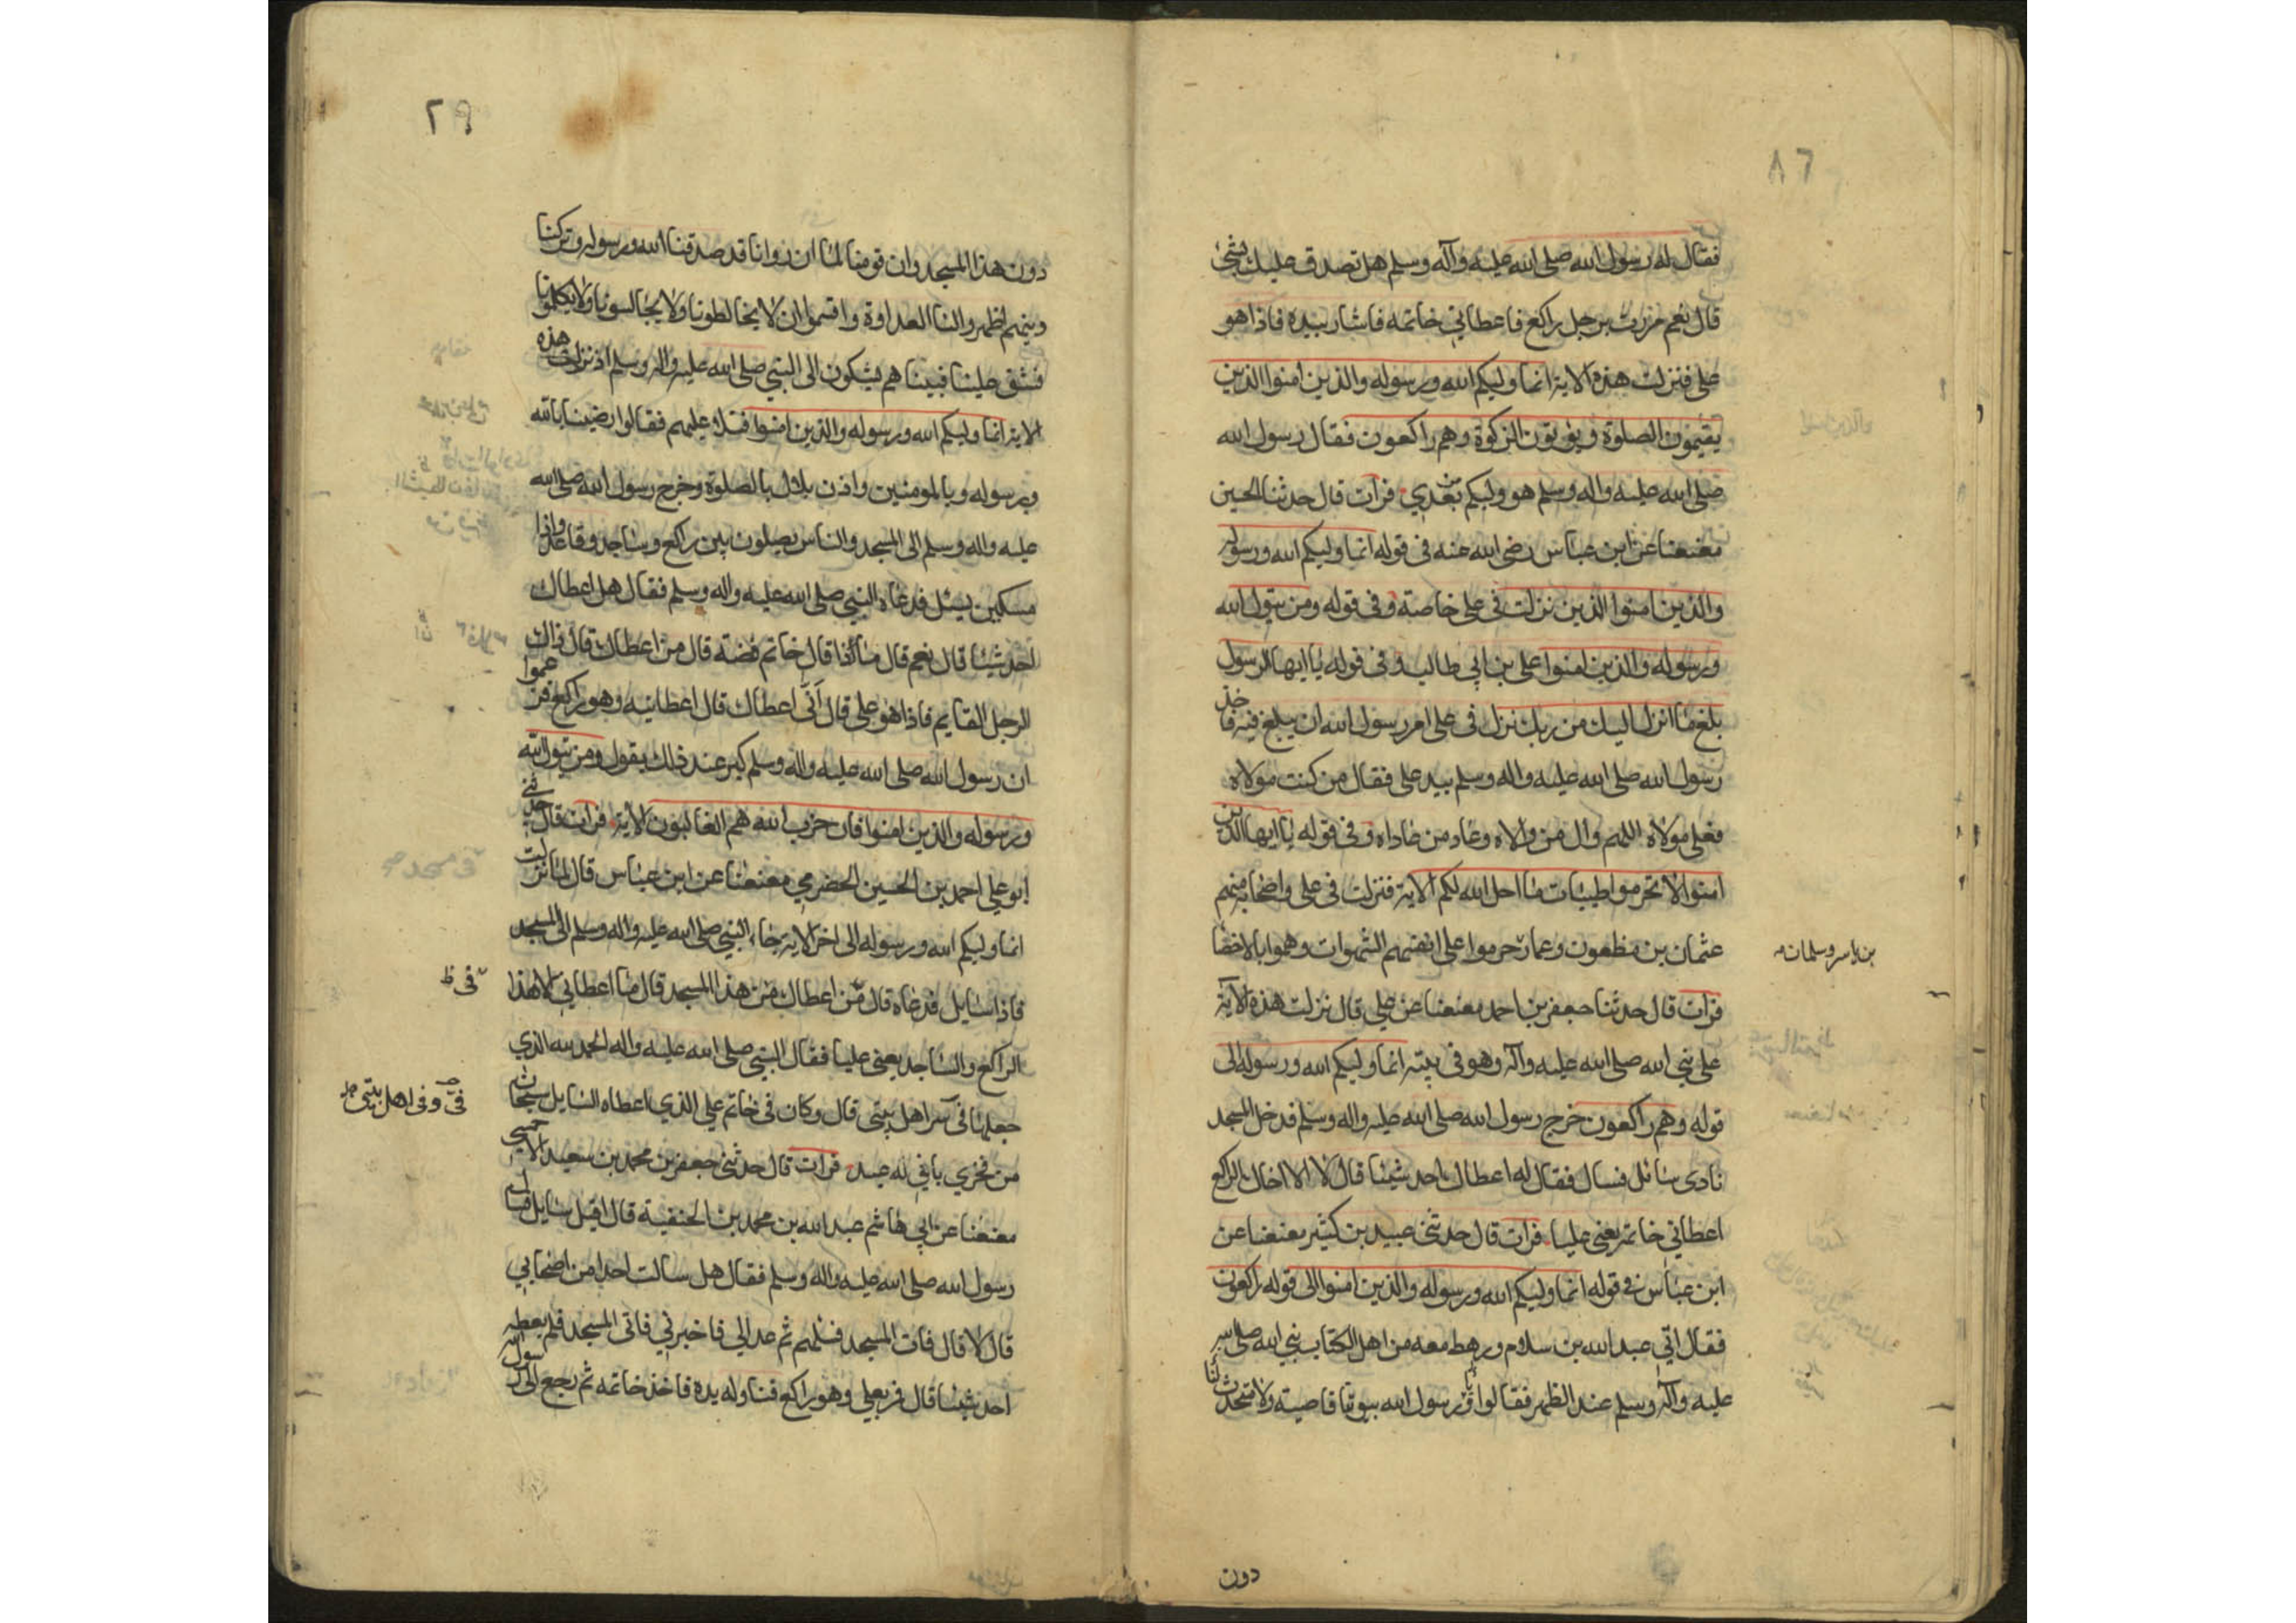 ٨٦
فقال له رسول الله صلى الله عليه وآله وسلم هل تصدق عليك بشئ
قال نعم مررت برجل راكع فاعطاني خاتمه فاشار بيده فاذا هو
على فنزلت هذه الاية انما وليكم الله ورسوله والذين امنوا الذين
يقيمون الصلوة ويؤتون الزكوة وهم راكعون فقال رسول الله
صلى الله عليه واله وسلم هو وليكم من بعدي فرات قال حدثنا الحسين
معنعنا عن ابن عباس رضى الله عنه في قوله انما وليكم الله ورسوله
والذين امنوا الذين نزلت في علي خاصة وفي قوله ومن يتول الله
ورسوله والذين امنوا علي بن ابي طالب وفي قوله يا ايها الرسول
بلغ ما انزل اليك من ربك نزل في علي امر رسول الله ان يبلغ فيه فاخذ
رسول الله صلى الله عليه واله وسلم بيد علي فقال من كنت مولاه
فعلي مولاه اللهم وال من والاه وعاد من عاداه وفي قوله يا ايها الذين
امنوا لا تحرموا طيبات ما احل الله لكم الاية فنزلت في علي واصحابه منهم
عثمان بن مظعون وعمار حرموا على انفسهم الشهوات وهموا بالاخصا
بن ياسر وسلمان
فرات قال حدثنا جعفر بن احمد معنعنا عن علي قال نزلت هذه الاية
على نبي الله صلى الله عليه وآله وهو في بيته انما وليكم الله ورسوله الى
قوله وهم راكعون خرج رسول الله صلى الله عليه واله وسلم فدخل المسجد
نادى سائل فسال فقال له اعطاك احد شيئا قال لا الا ذاك الراكع
اعطاني خاتمه يعني عليا فرات قال حدثني عبيد بن كثير معنعنا عن
ابن عباس في قوله انما وليكم الله ورسوله والذين امنوا الى قوله راكعون
فقال اتي عبد الله بن سلام ورهط معه من اهل الكتاب نبي الله صلى الله
عليه وآله وسلم عند الظهر فقالوا يا رسول الله بيوتنا قاصية ولا متحدث لنا
دون
دون هذا المسجد وان قومنا لما ان راوانا قد صدقنا الله ورسوله وتركنا
دينهم اظهروا لنا العداوة واقسموا ان لا يخالطونا ولا يجالسونا ولا يكلمونا
فشق علينا فبينا هم يشكون الى النبي صلى الله عليه واله وسلم اذ نزلت هذه
الاية انما وليكم الله ورسوله والذين امنوا فتلا عليهم فقالوا رضينا بالله
وبرسوله وبالمومنين واذن بلال بالصلوة وخرج رسول الله صلى الله
عليه واله وسلم الى المسجد والناس يصلون بين راكع وساجد وقاعد واذا
مسكين يسئل فدعاه النبي صلى الله عليه واله وسلم فقال هل اعطاك
احد شيئا قال نعم قال ماذا قال خاتم فضة قال من اعطاك قال ذاك
الرجل القايم فاذا هو علي قال اَنّى اعطاك قال اعطانيه وهو راكع فزعموا
ان رسول الله صلى الله عليه واله وسلم كبر عند ذلك يقول ومن يتول الله
ورسوله والذين امنوا فان حزب الله هم الغالبون الاية فرات قال حدثني
ابو علي احمد بن الحسين الحضرمي معنعنا عن ابن عباس قال لما نزلت
انما وليكم الله ورسوله الى اخر الاية جاء النبي صلى الله عليه واله وسلم الى المسجد
فاذا سايل فدعاه قال من اعطاك من هذا المسجد قال ما اعطاني الا هذا
في ظ
الراكع والساجد يعني عليا فقال النبي صلى الله عليه واله الحمد لله الذي
جعلها في اهل بيتي قال وكان في خاتم علي الذي اعطاه السايل سبحان
في وفي اهل بيتي
من فخري باني له عبد فرات قال حدثني جعفر بن محمد بن سعيد الاحمسي
معنعنا عن ابي هاشم عبد الله بن محمد بن الحنفية قال اقبل سايل فسال
رسول الله صلى الله عليه واله وسلم فقال هل سالت احدا من اصحابي
قال لا قال فات المسجد فسلهم ثم عد الي فاخبرني فاتى المسجد فلم يعطه
احد شيئا قال فر بعلي وهو راكع فناوله يده فاخذ خاتمه ثم رجع الى رسول الله